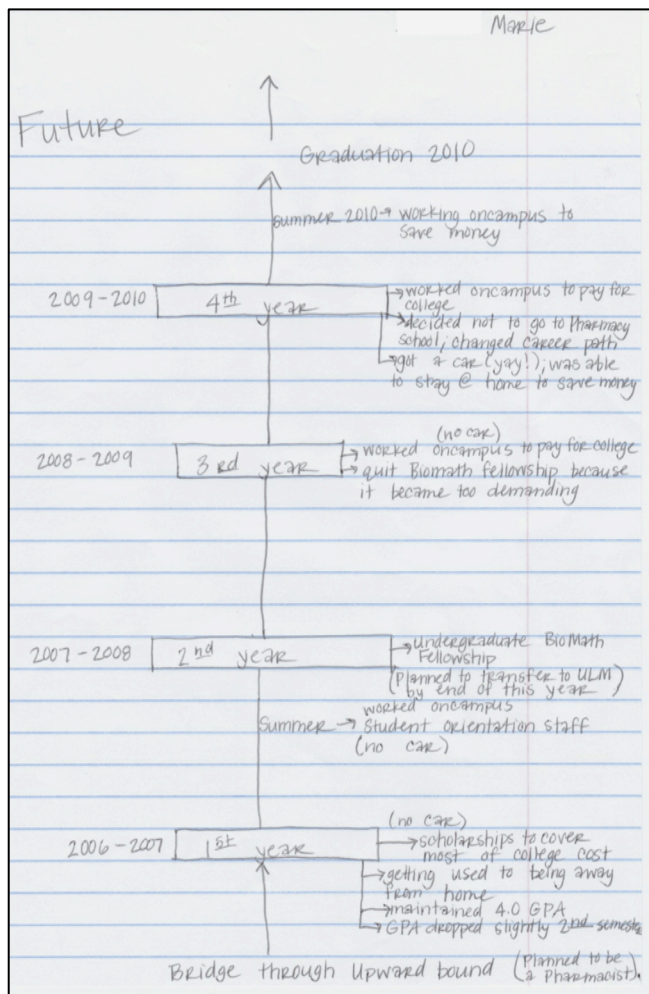 Marie
Future
Graduation 2010
Summer 2010→ working oncampus to
save money
2009-2010
4th
year
→worked oncampus to pay for
college
→decided not to go to Pharmacy
school; changed career path
→got a car (yay!); was able
to stay @ home to save money
2008-2009
3rd year
(no car)
→ worked oncampus to pay for college
→ quit Biomath fellowship because
it became too demanding
2007-2008
2nd year
→undergraduate BioMath
Fellowship
(Planned to transfer to ULM)
by end of this year
Summer → worked oncampus
student orientation staff
(no car)
2006-2007
1st
year
(no car)
→scholarships to cover
most of college cost
→getting used to being away
from home
→maintained 4.0 GPA
→GPA dropped slightly 2nd semester
Bridge through Upward bound (Planned to be
a Pharmacist).